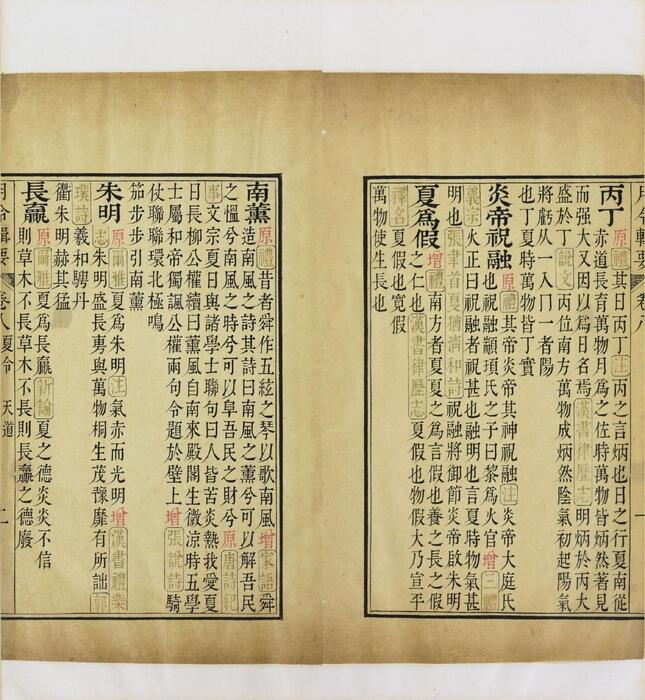 月令輯要 卷八 一
丙丁 原禮其日丙丁注丙之言炳也日之行夏南從
赤道長育萬物月為之佐時萬物皆炳然著見
而强大又因以為日名焉漢書律歷志明炳於丙大
盛於丁說文丙位南方萬物成炳然陰氣初起陽氣
將虧从一入冂一者陽
也丁夏時萬物皆丁實
炎帝祝融 原禮其帝炎帝其神祝融注炎帝大庭氏
也祝融顓頊氏之子曰黎為火官增三禮
義宗火正曰祝融者祝甚也融明也言夏時物氣甚
明也張聿首夏猶清和詩祝融將御節炎帝啟朱明
夏為假 增禮南方者夏夏之為言假也養之長之假
之仁也漢書律歷志夏假也物假大乃宣平
釋名夏假也寬假
萬物使生長也
南薰 原禮昔者舜作五絃之琴以歌南風增家語舜
造南風之詩其詩曰南風之薰兮可以解吾民
之慍兮南風之時兮可以阜吾民之財兮原唐詩紀
事文宗夏日與諸學士聯句曰人皆苦炎熱我愛夏
日長柳公權續曰薰風自南來殿閣生微涼時五學
士屬和帝獨諷公權兩句令題於壁上增張說詩騎
仗聯聯環北極鳴
笳步步引南薰
朱明 原爾雅夏為朱明注氣赤而光明增漢書禮樂
志朱明盛長旉與萬物桐生茂豫靡有所詘郭
璞詩羲和騁丹
衢朱明赫其猛
長贏 原爾雅夏為長贏新論夏之德炎炎不信
則草木不長草木不長則長贏之德廢
月令輯要 卷八 夏令 天道 二